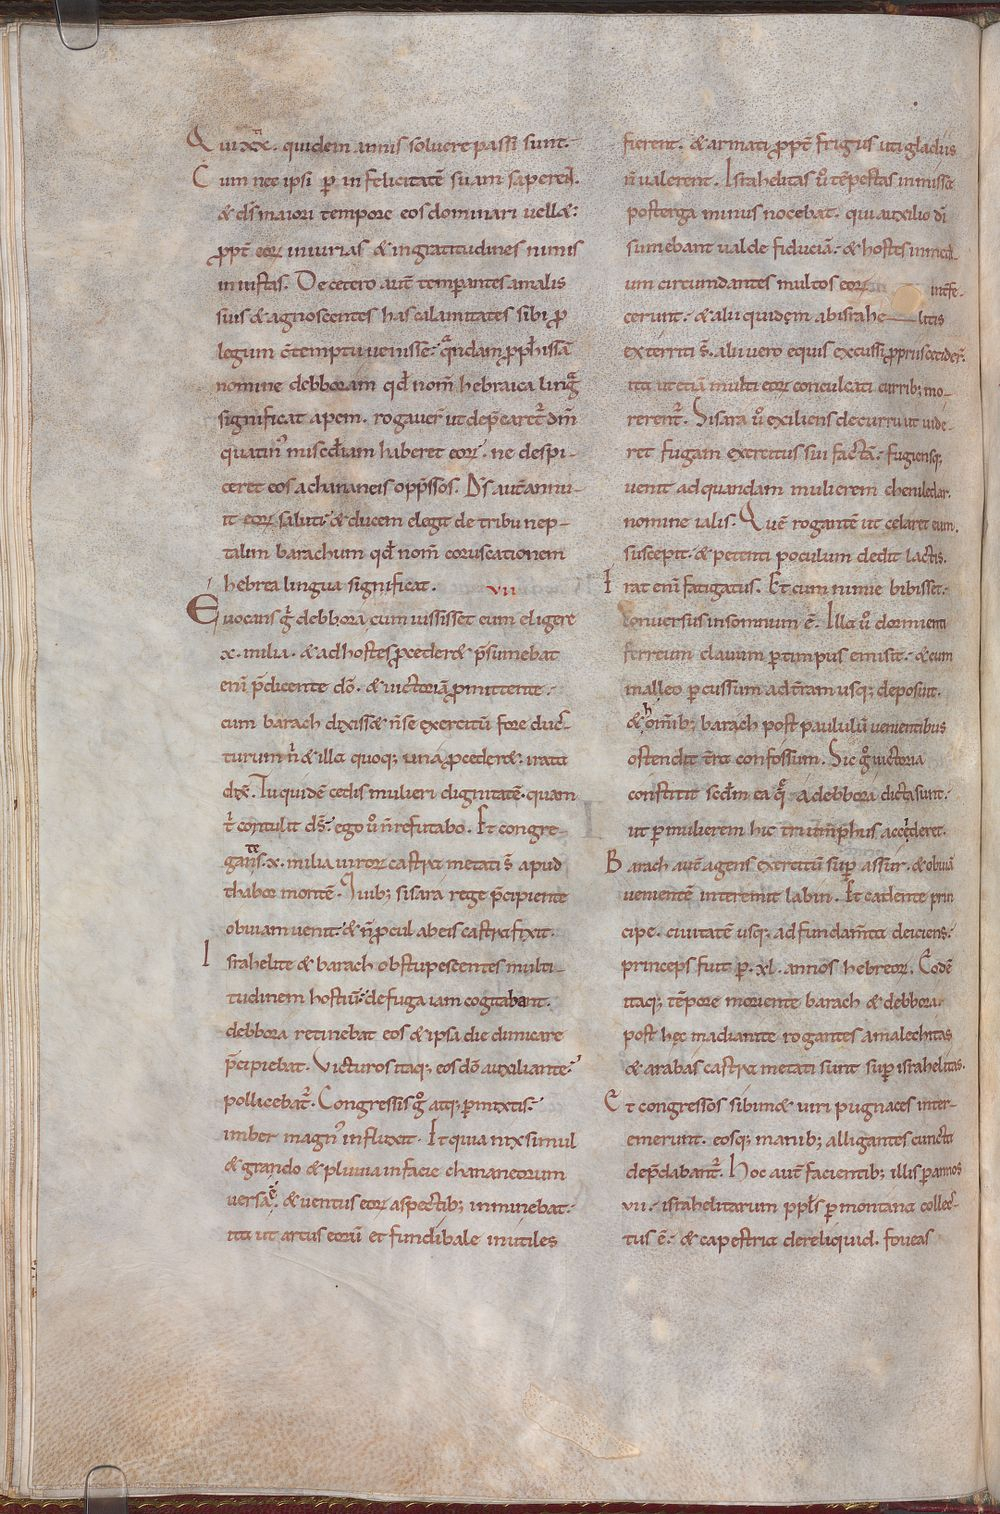 Qui xx. quidem annis soluere passi sunt.
Cum nec ipsi p̄ infelicitatē suam saperent.
& ds̄ maiori tempore eos dominari uell&.
ꝓpt̄ eoꝝ iniurias & ingratitudines nimis
iniustas. De cetero aut̄ temperantes a malis
suis & agnoscentes has calamitates sibi ꝓ
legum c̄temptu uenisse. quandam ꝓph̄issā
nomine debboram qd̄ nom̄ hebraica lingua
significat apem. rogauer̄ ut dep̄caret᷑ dn̄m
quatin᷒ misc̄diam haberet eoꝝ. ne despi-
ceret eos a chananeis opp̄ssos. Ds̄ aut̄ annu-
it eoꝝ saluti. & ducem elegit de tribu nep-
talim barachum qd̄ nom̄ coruscationem
hebrea lingua significat. vii
Euocans g̊ debbora cum iussisset eum eligere
x. milia. & ad hostes ꝓceder& p̄sumebat
eni p̄dicente dō. & uictoriā ꝓmittente.
cum barach dixiss& n̄ se exercitū fore duc-
turum n̄ & illa quoq; una ꝓceder&. irata
dix̄. Tu quidē cedis mulieri dignitatē quam
t̄ contulit ds̄. ego ů n̄ refutabo. Et congre-
gantes. x. milia uiroꝝ castra metati s̄ apud
thabor montē. Quib; sisara rege p̄cipiente
obuiam uenit. & n̄ ꝓcul ab eis castra fixit.
Israhelite & barach obstupescentes multi-
tudinem hostiū. de fuga iam cogitabant.
debbora retinebat eos & ipsa die dimicare
p̄cipiebat. Victuros itaq; eos dō auxiliante.
pollicebat᷑. Congressis g̊ atq; ꝑmixtis.
imber magn᷒ influxit. Et quia nix simul
& grando & pluuia in facie chananeorum
uersa ē. & uentus eoꝝ aspectib; inminebat.
ita ut artus eorū et fundibale inutiles
fierent. & armati ꝓpt̄ frigus uti gladiis
n̄ ualerent. Israhelitas ů tēpestas inmissa
posterga minus nocebat. qui auxilio dī
sumebant ualde fiduciā. & hostes in medi-
um circumdantes multos eoꝝ interfe-
cerunt. & alii quidem ab israhe—litis
exterriti s̄. alii uero equis excussi ꝓpriis cecider̄.
ita ut etiā multi eoꝝ conculcati currib; mo-
rerent᷑. Sisara ů exiliens de curru ut uide-
ret fugam exercitus sui factā. fugiensq;
uenit ad quandam mulierem cheniledar.
nomine ialis. Quē rogantē ut celaret eum.
suscepit. & petenti poculum dedit lactis.
Erat eni fatigatus. Et cum nimie bibisset.
conuersus in somnum ē. Illa ů dormienti
ferreum clauum ꝑ timpus emisit. & eum
malleo ꝑcussum ad t̄ram usq; deposuit.
& hom̄ib; barach post paululū uenientibus
ostendit t̄re confossum. Sic g̊ uictoria
constitit sc̄dm ea q̄ a debbora dicta sunt.
ut ꝑ mulierem hic triumphus accederet.
Barach aut̄ agens exercitū suꝑ assur. & obuiā
uenientē interemit iabin. Et cadente prin
cipe. ciuitatē usq; ad fundam̄ta deiciens.
princeps fuit ꝑ. xl. annos hebreoꝝ. Eodē
itaq; tēpore moriente barach & debbora.
post hec madianite rogantes amalechitas
& arabas castra metati sunt suꝑ israhelitas.
Et congressos sibim& uiri pugnaces inter-
emerunt. eosq; manib; alligantes cuncta
dep̄dabant᷑. Hoc aut̄ facientib; illis ꝑ annos
vii. israhelitarum ppl̄s ꝑ montana collec-
tus ē. & capestria dereliquid. foueas